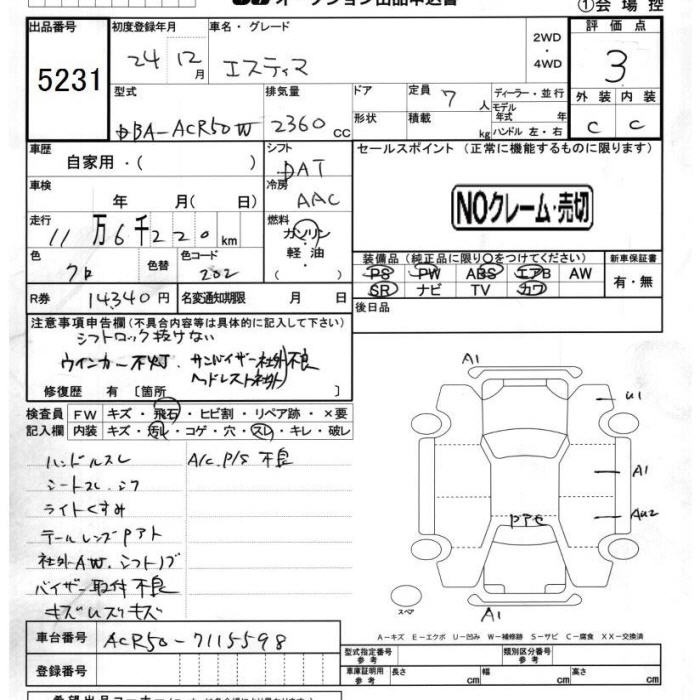 オークション出品申込書
①会場控
出品番号
5231
初度登録年月
24 12月
車名・グレード
エスティマ
2WD
・
4WD
評価点
3
型式
DBA-ACR50W
排気量
2360cc
ドア
形状
定員 7人
積載 kg
ディーラー・並行
モデル
年式 年
ハンドル 左・右
外装 内装
C C
車歴
自家用・( )
シフト
DAT
セールスポイント (正常に機能するものに限ります)
車検
年 月( 日)
冷房
AAC
NOクレーム・売切
走行
11万6千220km
燃料
ガソリン
軽・油
色
クロ
色替
色コード
202
装備品(純正品に限り○をつけてください)
PS PW ABS エアB AW
SR ナビ TV カワ
新車保証書
有・無
R券 14340円
名変通知期限 月 日
後日品
注意事項申告欄(不具合内容等は具体的に記入して下さい)
シフトロック抜けない
ウインカー不灯 サンバイザー社外不良
ヘッドレスト社外
修復歴 有 〔箇所 〕
検査員
記入欄
FW キズ・飛石・ヒビ割・リペア跡・×要
内装 キズ・汚レ・コゲ・穴・スレ・キレ・破レ
ハンドルスレ A/C.P/S 不良
シートスレ.シワ
ライトくすみ
テールレンズPアト
社外AW.シフトノブ
バイザー取付不良
キズUスリキズ
A1
U1
A1
AU2
Pアセ
A1
スペア
A-キズ E-エクボ U-凹み W-補修跡 S-サビ C-腐食 XX-交換済
車台番号 ACR50-7115598
登録番号
型式指定番号
参考
類別区分番号
参考
車庫証明用
参考
長さ cm 幅 cm 高さ cm